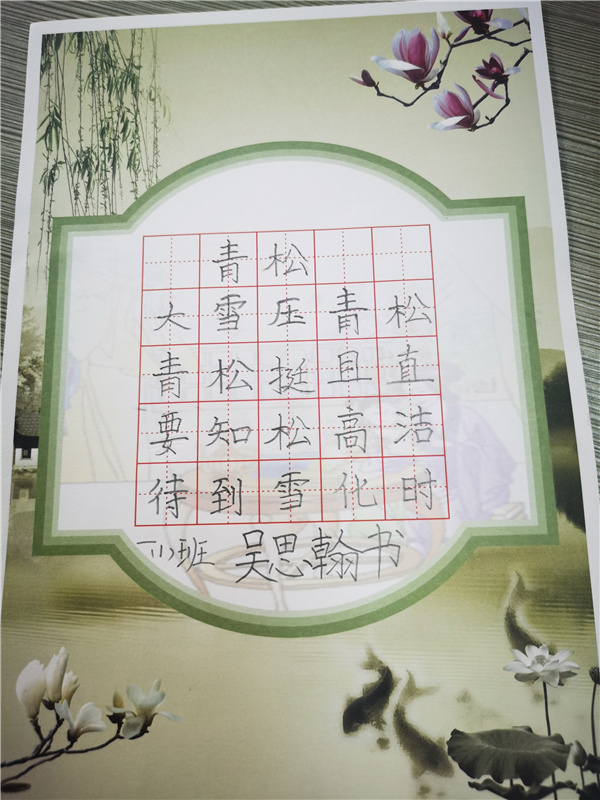 青松
大雪压青松
青松挺且直
要知松高洁
待到雪化时
一(1)班 吴思翰书